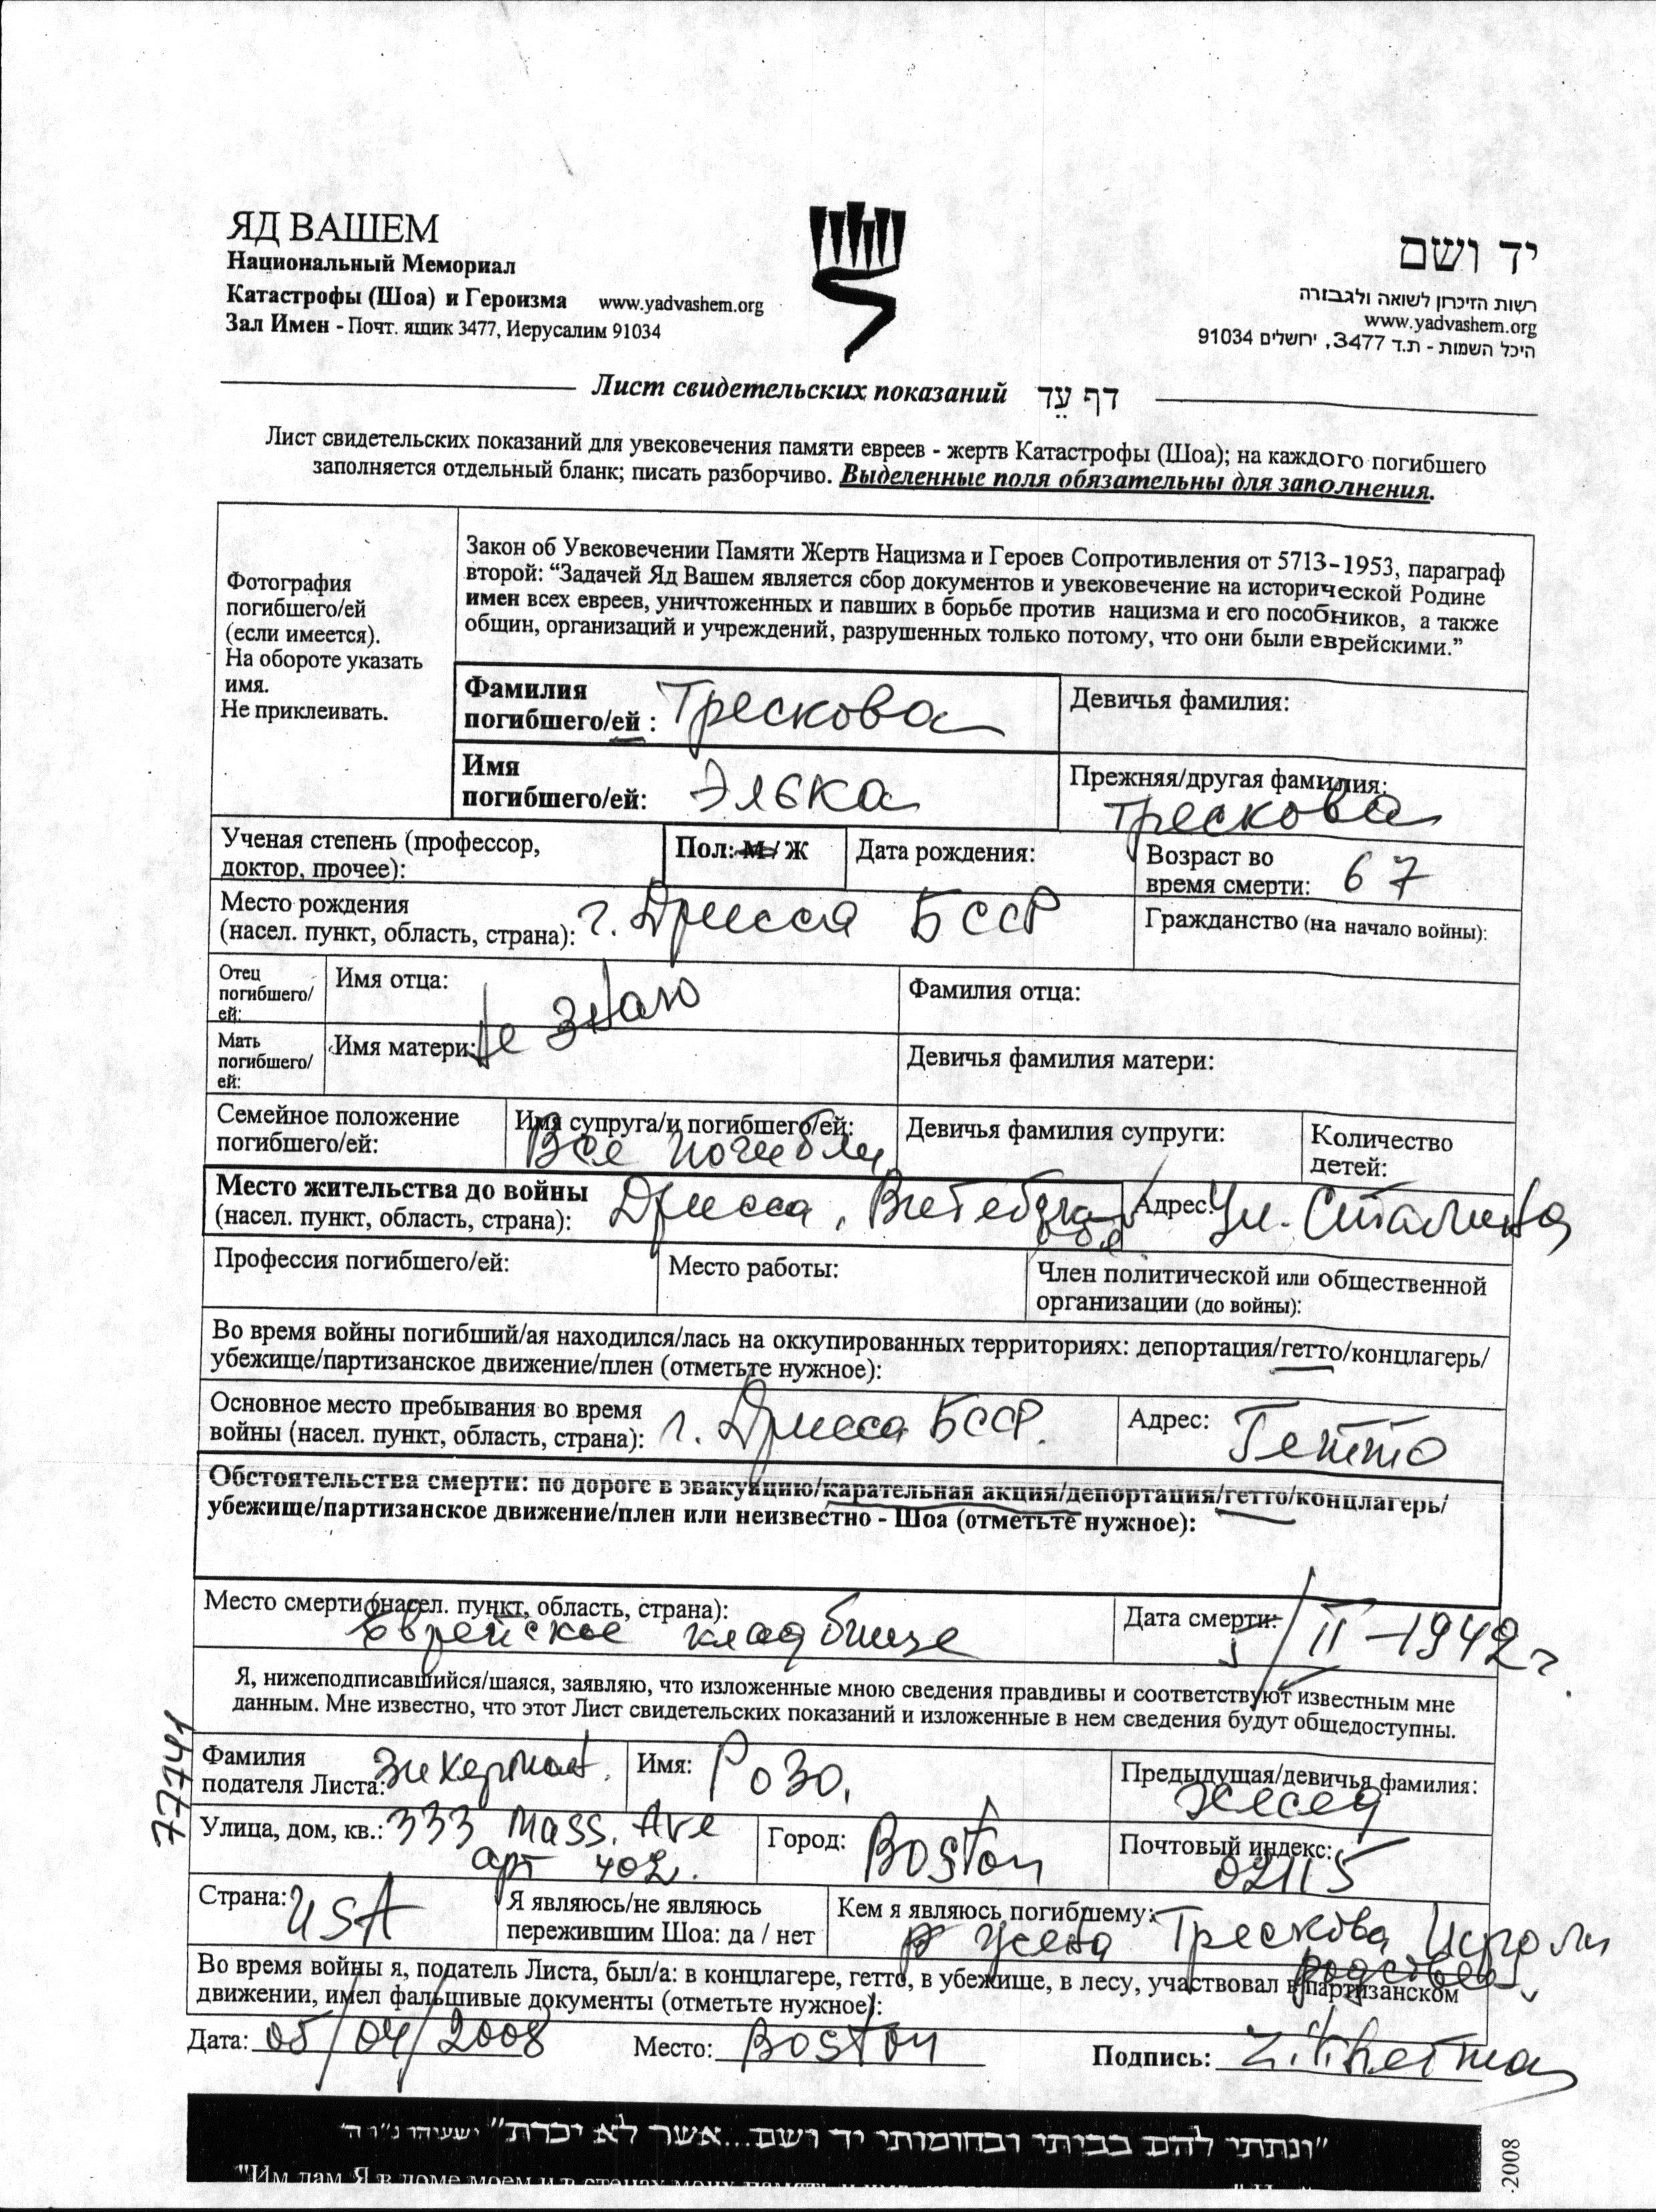 ЯД ВАШЕМ
Национальный Мемориал
Катастрофы (Шоа) и Героизма www.yadvashem.org
Зал Имен - Почт. ящик 3477, Иерусалим 91034
יד ושם
רשות הזיכרון לשואה ולגבורה
www.yadvashem.org
היכל השמות - ת.ד 3477, ירושלים 91034
Лист свидетельских показаний דף עֵד
Лист свидетельских показаний для увековечения памяти евреев - жертв Катастрофы (Шоа); на каждого погибшего
заполняется отдельный бланк; писать разборчиво. Выделенные поля обязательны для заполнения.
Фотография
погибшего/ей
(если имеется).
На обороте указать
имя.
Не приклеивать.
Закон об Увековечении Памяти Жертв Нацизма и Героев Сопротивления от 5713-1953, параграф
второй: “Задачей Яд Вашем является сбор документов и увековечение на исторической Родине
имен всех евреев, уничтоженных и павших в борьбе против нацизма и его пособников, а также
общин, организаций и учреждений, разрушенных только потому, что они были еврейскими.”
Фамилия
погибшего/ей : Трескова
Девичья фамилия:
Имя
погибшего/ей: Элька
Прежняя/другая фамилия:
Трескова
Ученая степень (профессор,
доктор, прочее):
Пол: М / Ж
Дата рождения:
Возраст во
время смерти: 67
Место рождения
(насел. пункт, область, страна): г. Дрисса БССР
Гражданство (на начало войны):
Отец
погибшего/
ей:
Имя отца:
Фамилия отца:
Не знаю
Мать
погибшего/
ей:
Имя матери:
Девичья фамилия матери:
Семейное положение
погибшего/ей:
Имя супруга/и погибшего/ей:
Все погибли
Девичья фамилия супруги:
Количество
детей:
Место жительства до войны
(насел. пункт, область, страна): Дрисса, Витебская
Адрес: Ул. Сталина
Профессия погибшего/ей:
Место работы:
Член политической или общественной
организации (до войны):
Во время войны погибший/ая находился/лась на оккупированных территориях: депортация/гетто/концлагерь/
убежище/партизанское движение/плен (отметьте нужное):
Основное место пребывания во время
войны (насел. пункт, область, страна): г. Дрисса БССР.
Адрес: Гетто
Обстоятельства смерти: по дороге в эвакуацию/карательная акция/депортация/гетто/концлагерь/
убежище/партизанское движение/плен или неизвестно - Шоа (отметьте нужное):
Место смерти (насел. пункт, область, страна):
Еврейское кладбище
Дата смерти: II-1942г.
Я, нижеподписавшийся/шаяся, заявляю, что изложенные мною сведения правдивы и соответствуют известным мне
данным. Мне известно, что этот Лист свидетельских показаний и изложенные в нем сведения будут общедоступны.
Фамилия
подателя Листа: Зихерман.
Имя: Роза.
Предыдущая/девичья фамилия:
Улица, дом, кв.: 333 Mass. Ave
apт 402.
Город: Boston
Почтовый индекс:
02115
Страна: USA
Я являюсь/не являюсь
пережившим Шоа: да / нет
Кем я являюсь погибшему:
Трескова
Во время войны я, податель Листа, был/а: в концлагере, гетто, в убежище, в лесу, участвовал в партизанском
движении, имел фальшивые документы (отметьте нужное):
Дата: 05/04/2008
Место: Boston
Подпись: Zikherman
"ונתתי להם בביתי ובחומותי יד ושם...אשר לא יכרת" ישעיהו נ"ו ה'
"Им дам Я в доме моем и в стенах моих
-2008